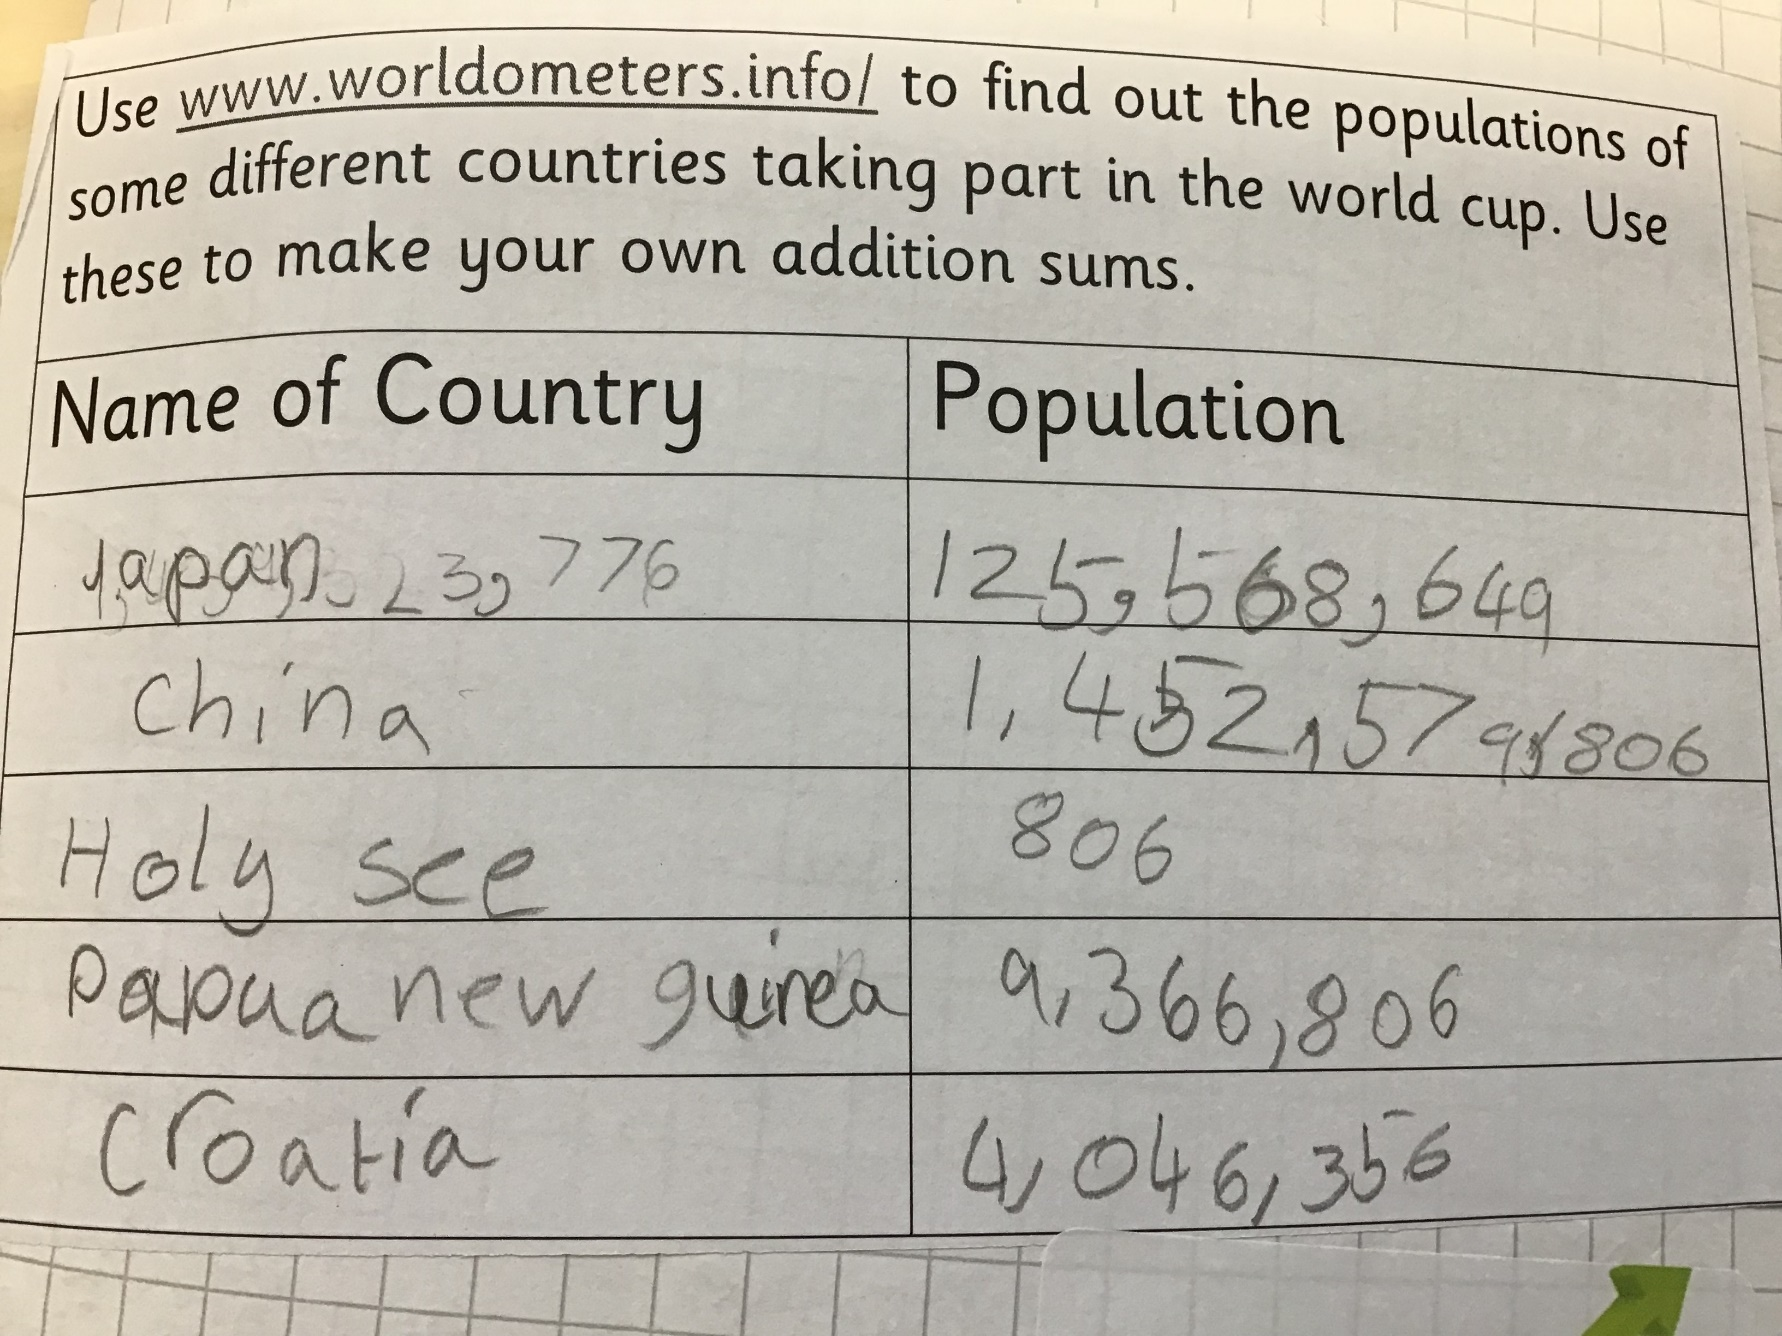 Use www.worldometers.info/ to find out the populations of
some different countries taking part in the world cup. Use
these to make your own addition sums.
Name of Country Population
Japan 23,776 125,568,649
China 1,452,579,806
Holy see 806
Papua new guinea 9,366,806
Croatia 4,046,356